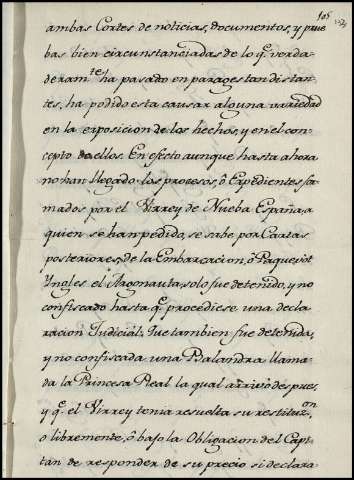 105
ambas Cortes de noticias, documentos, y prue
bas bien circunstanciadas de lo q.e verda-
deram.te ha pasado en parages tan distan-
tes, ha podido esta causar alguna variedad
en la exposicion de los hechos, y en el con-
cepto de ellos. En efecto aunque hasta ahora
no han llegado los procesos, ó Expedientes for
mados por el Virrey de Nueba España, a
quien se han pedido, se sabe por Cartas
posteriores, de la Embarcacion, ó Paquevot
Yngles el Argonauta, solo fue detenido, y no
confiscado hasta q.e procediese una decla-
racion Judicial: Que tambien fue detenida,
y no confiscada una Balandra llama-
da la Princesa Real la qual arrivó despues,
y q.e el Virrey tenia resuelta su restituz.on
o libremente, ó bajo la Obligacion del Capi-
tan de responder de su precio si declara-